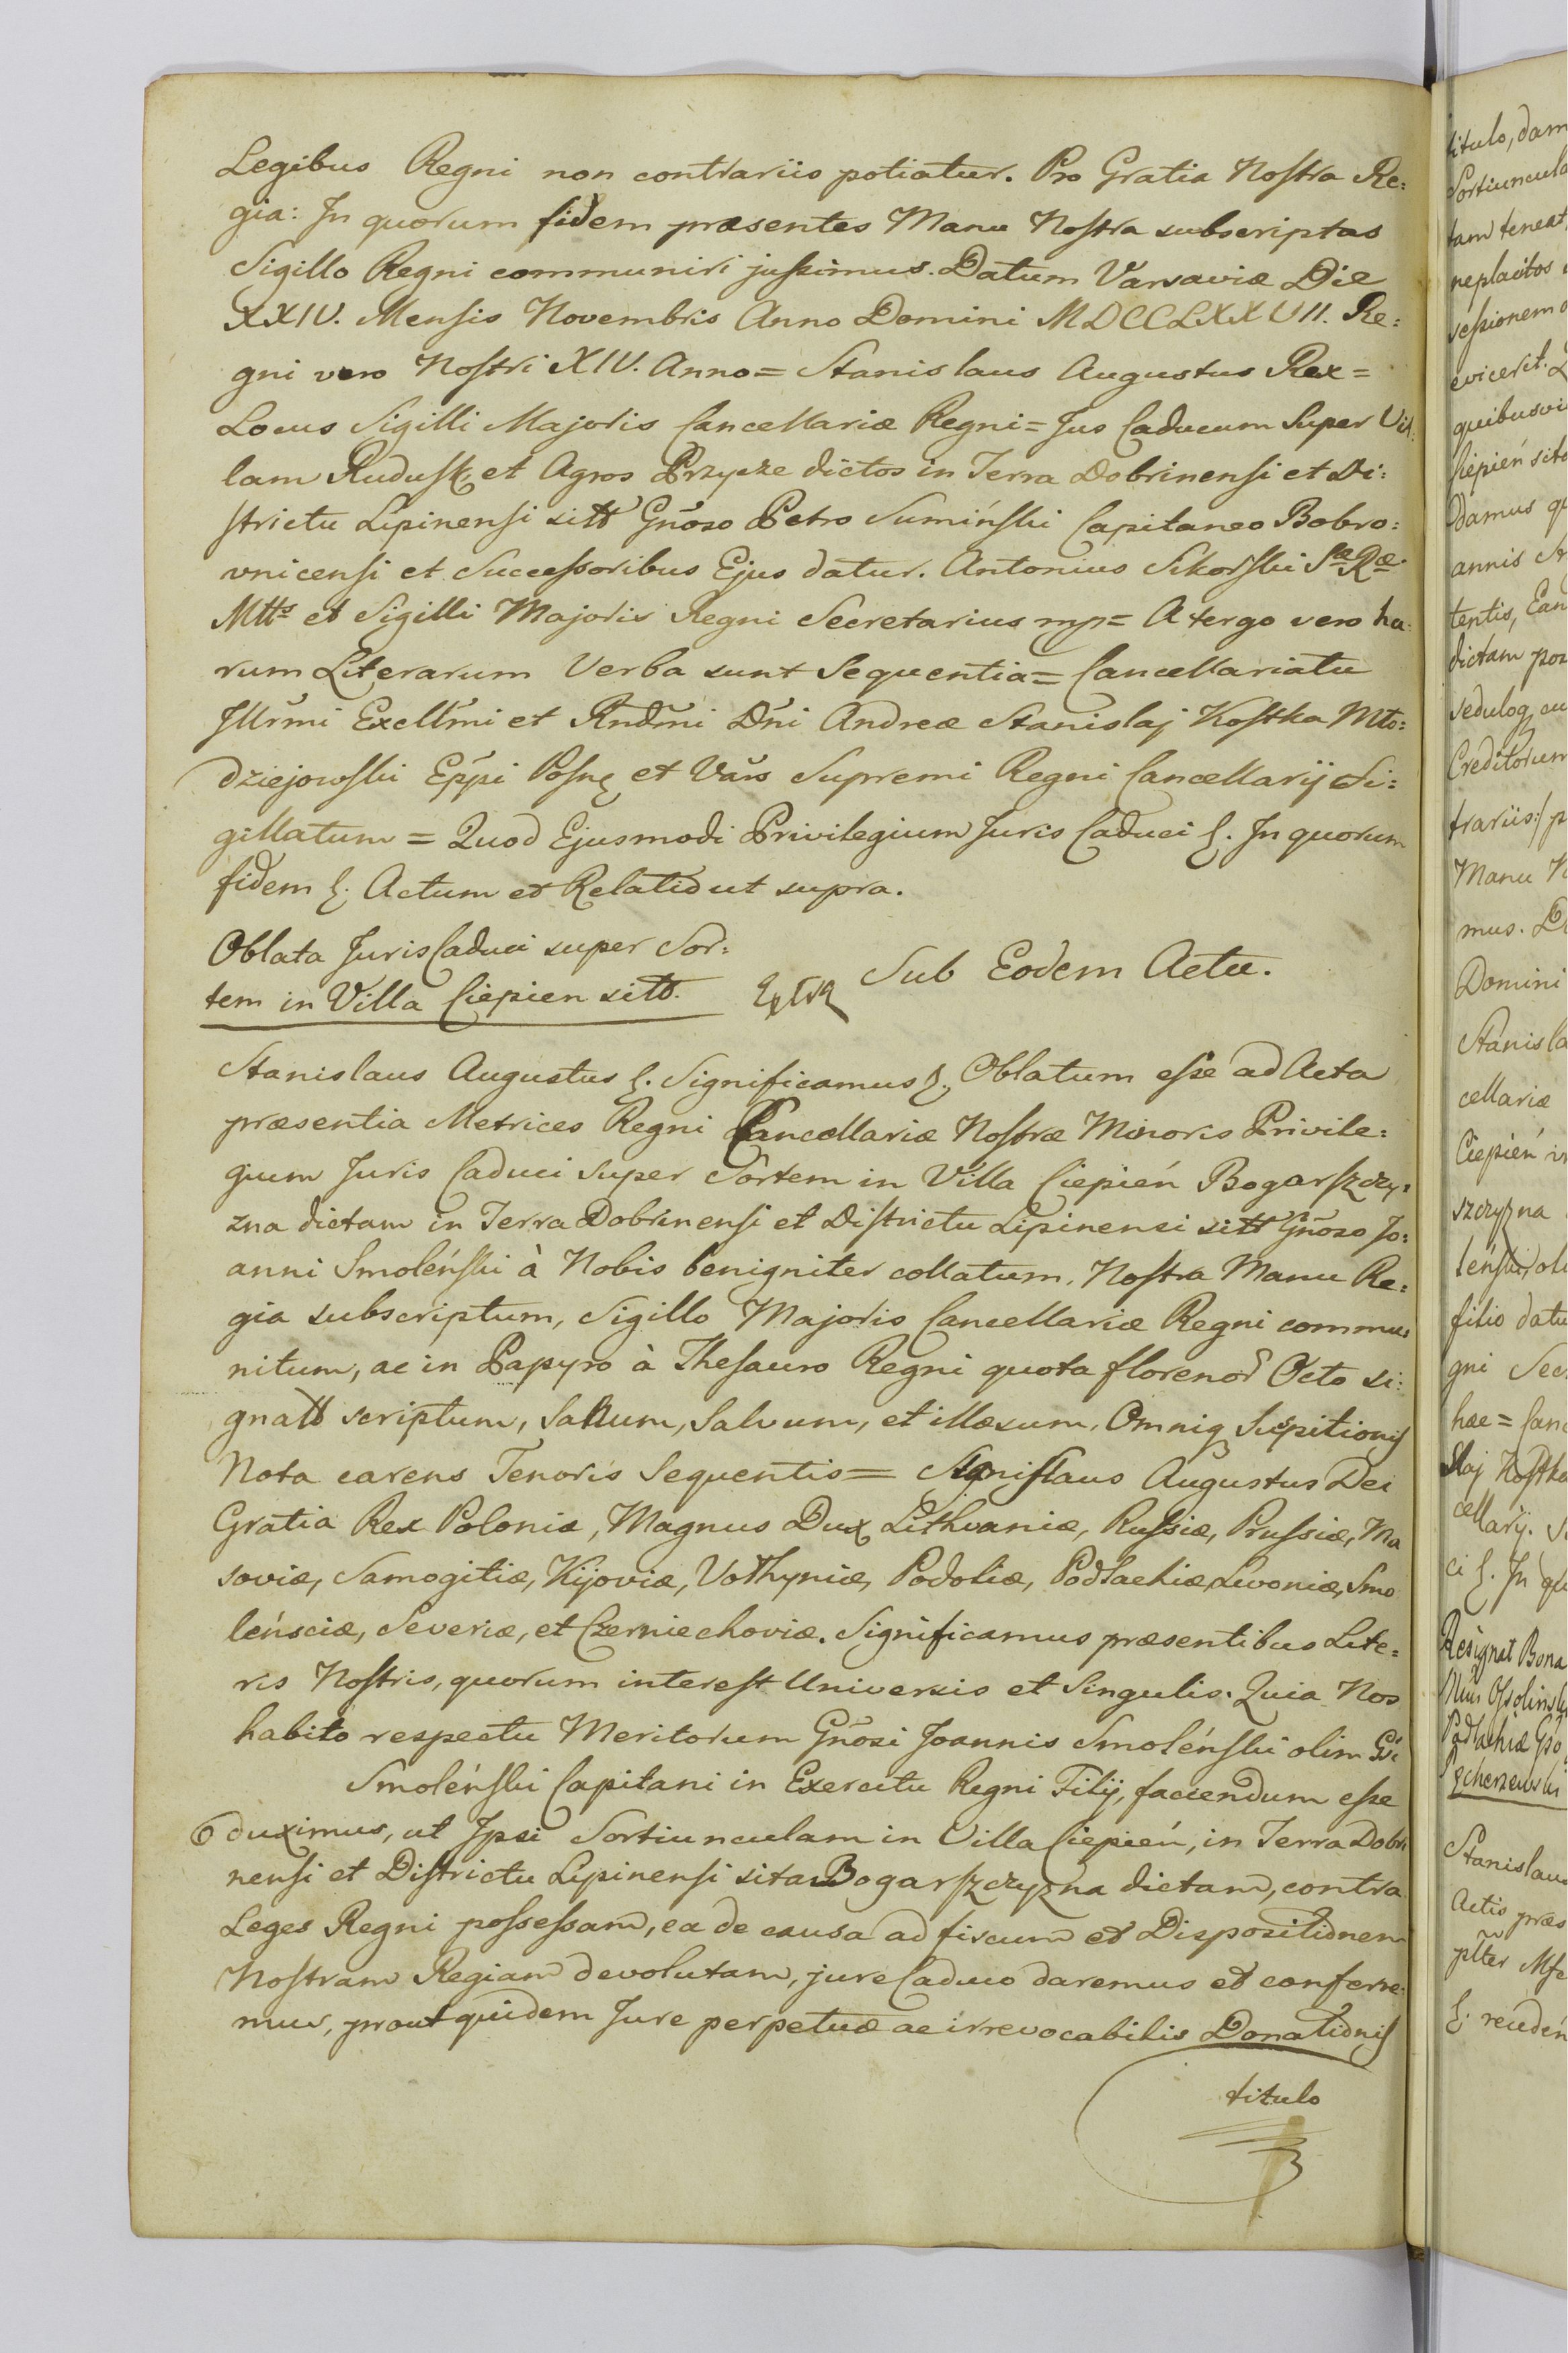 Legibus Regni non contrariis potiatur. Pro Gratia Nostra Re:
gia: In quorum fidem præsentes Manu Nostra subscriptas
Sigillo Regni communiri jussimus. Datum Varsaviæ Die
XXIV. Mensis Novembris Anno Domini MDCCLXXVII. Re:
gni vero Nostri XIV. Anno = Stanislaus Augustus Rex =
Locus Sigilli Majoris Cancellariæ Regni = Jus Caducum Super Vil:
lam Rudusk et Agros Przycze dictos in Terra Dobrinensi et Di:
strictu Lipinensi sitt Gñoso Petro Sumiński Capitaneo Bobro:
vnicensi et Successoribus Ejus datur. Antonius Sikorski Sæ Ræ
Mtts et Sigilli Majoris Regni Secretarius mp = A tergo vero ha:
rum Literarum Verba sunt Sequentia = Cancellariatu
Illrmi Excllmi et Rndmi Dni Andreæ Stanislaj Kostka Mło:
dziejowski Eppi Posn et Vars Supremi Regni Cancellarij Si:
gillatum = Quod Ejusmodi Privilegium Juris Caduci &. In quorum
fidem &. Actum et Relatio ut supra.
Oblata Juris Caduci super Sor:
tem in Villa Ciepien sitt.
Sub Eodem Actu.
Stanislaus Augustus &. Significamus &. Oblatum esse ad Acta
præsentia Metrices Regni Cancellariæ Nostræ Minoris Privile:
gium Juris Caduci super Sortem in Villa Ciepień Bogarszczy:
zna dictam in Terra Dobrinensi et Districtu Lipinensi sitt Gñoso Jo:
anni Smoleński à Nobis benigniter collatum, Nostra Manu Re:
gia subscriptum, Sigillo Majoris Cancellariæ Regni commu:
nitum, ac in Papyro à Thesauro Regni quota florenor Octo si:
gnatt scriptum, Sanum, Salvum, et illæsum, Omniq Suspitionis
Nota carens Tenoris Sequentis = Stanislaus Augustus Dei
Gratia Rex Poloniæ, Magnus Dux Lithvaniæ, Russiæ, Prussiæ, Ma
soviæ, Samogitiæ, Kijoviæ, Volhyniæ, Podoliæ, Podlachiæ, Livoniæ, Smo
lensciæ, Severiæ, et Czerniechoviæ. Significamus præsentibus Lite:
ris Nostris, quorum interest Universis et Singulis. Quia Nos
habito respectu Meritorum Gñosi Joannis Smoleński olim Gi
Smoleński Capitani in Exercitu Regni Filij, faciendum esse
duximus, ut Ipsi Sortiunculam in Villa Ciepień, in Terra Dobri
nensi et Districtu Lipinensi sitam Bogarszczyzna dictam, contra
Leges Regni possessam, ea de causa ad fiscum et Dispositionem
Nostram Regiam devolutam, jure Caduco daremus et conferre:
mus, prout quidem Jure perpetuæ ac irrevocabilis Donationis
titulo
titulo, dam
Sortiuncula
tam teneat
neplacitos
sessionem
evicerit.
quibusvi
Ciepień sit
damus qu
annis
tentis,
dictam
sedulog
Creditorum
trariis:/ p
Manu
mus.
Domini
Stanisla
cellariæ
Ciepień
szczyzna
leński, oli
filio datu
gni Sec
hæc = Canc
slaj Kostka
cellarij.
ci &. In qu
Resignat Bona
Ossolinsk
Podlachiæ
Stanislaus
Actis præs